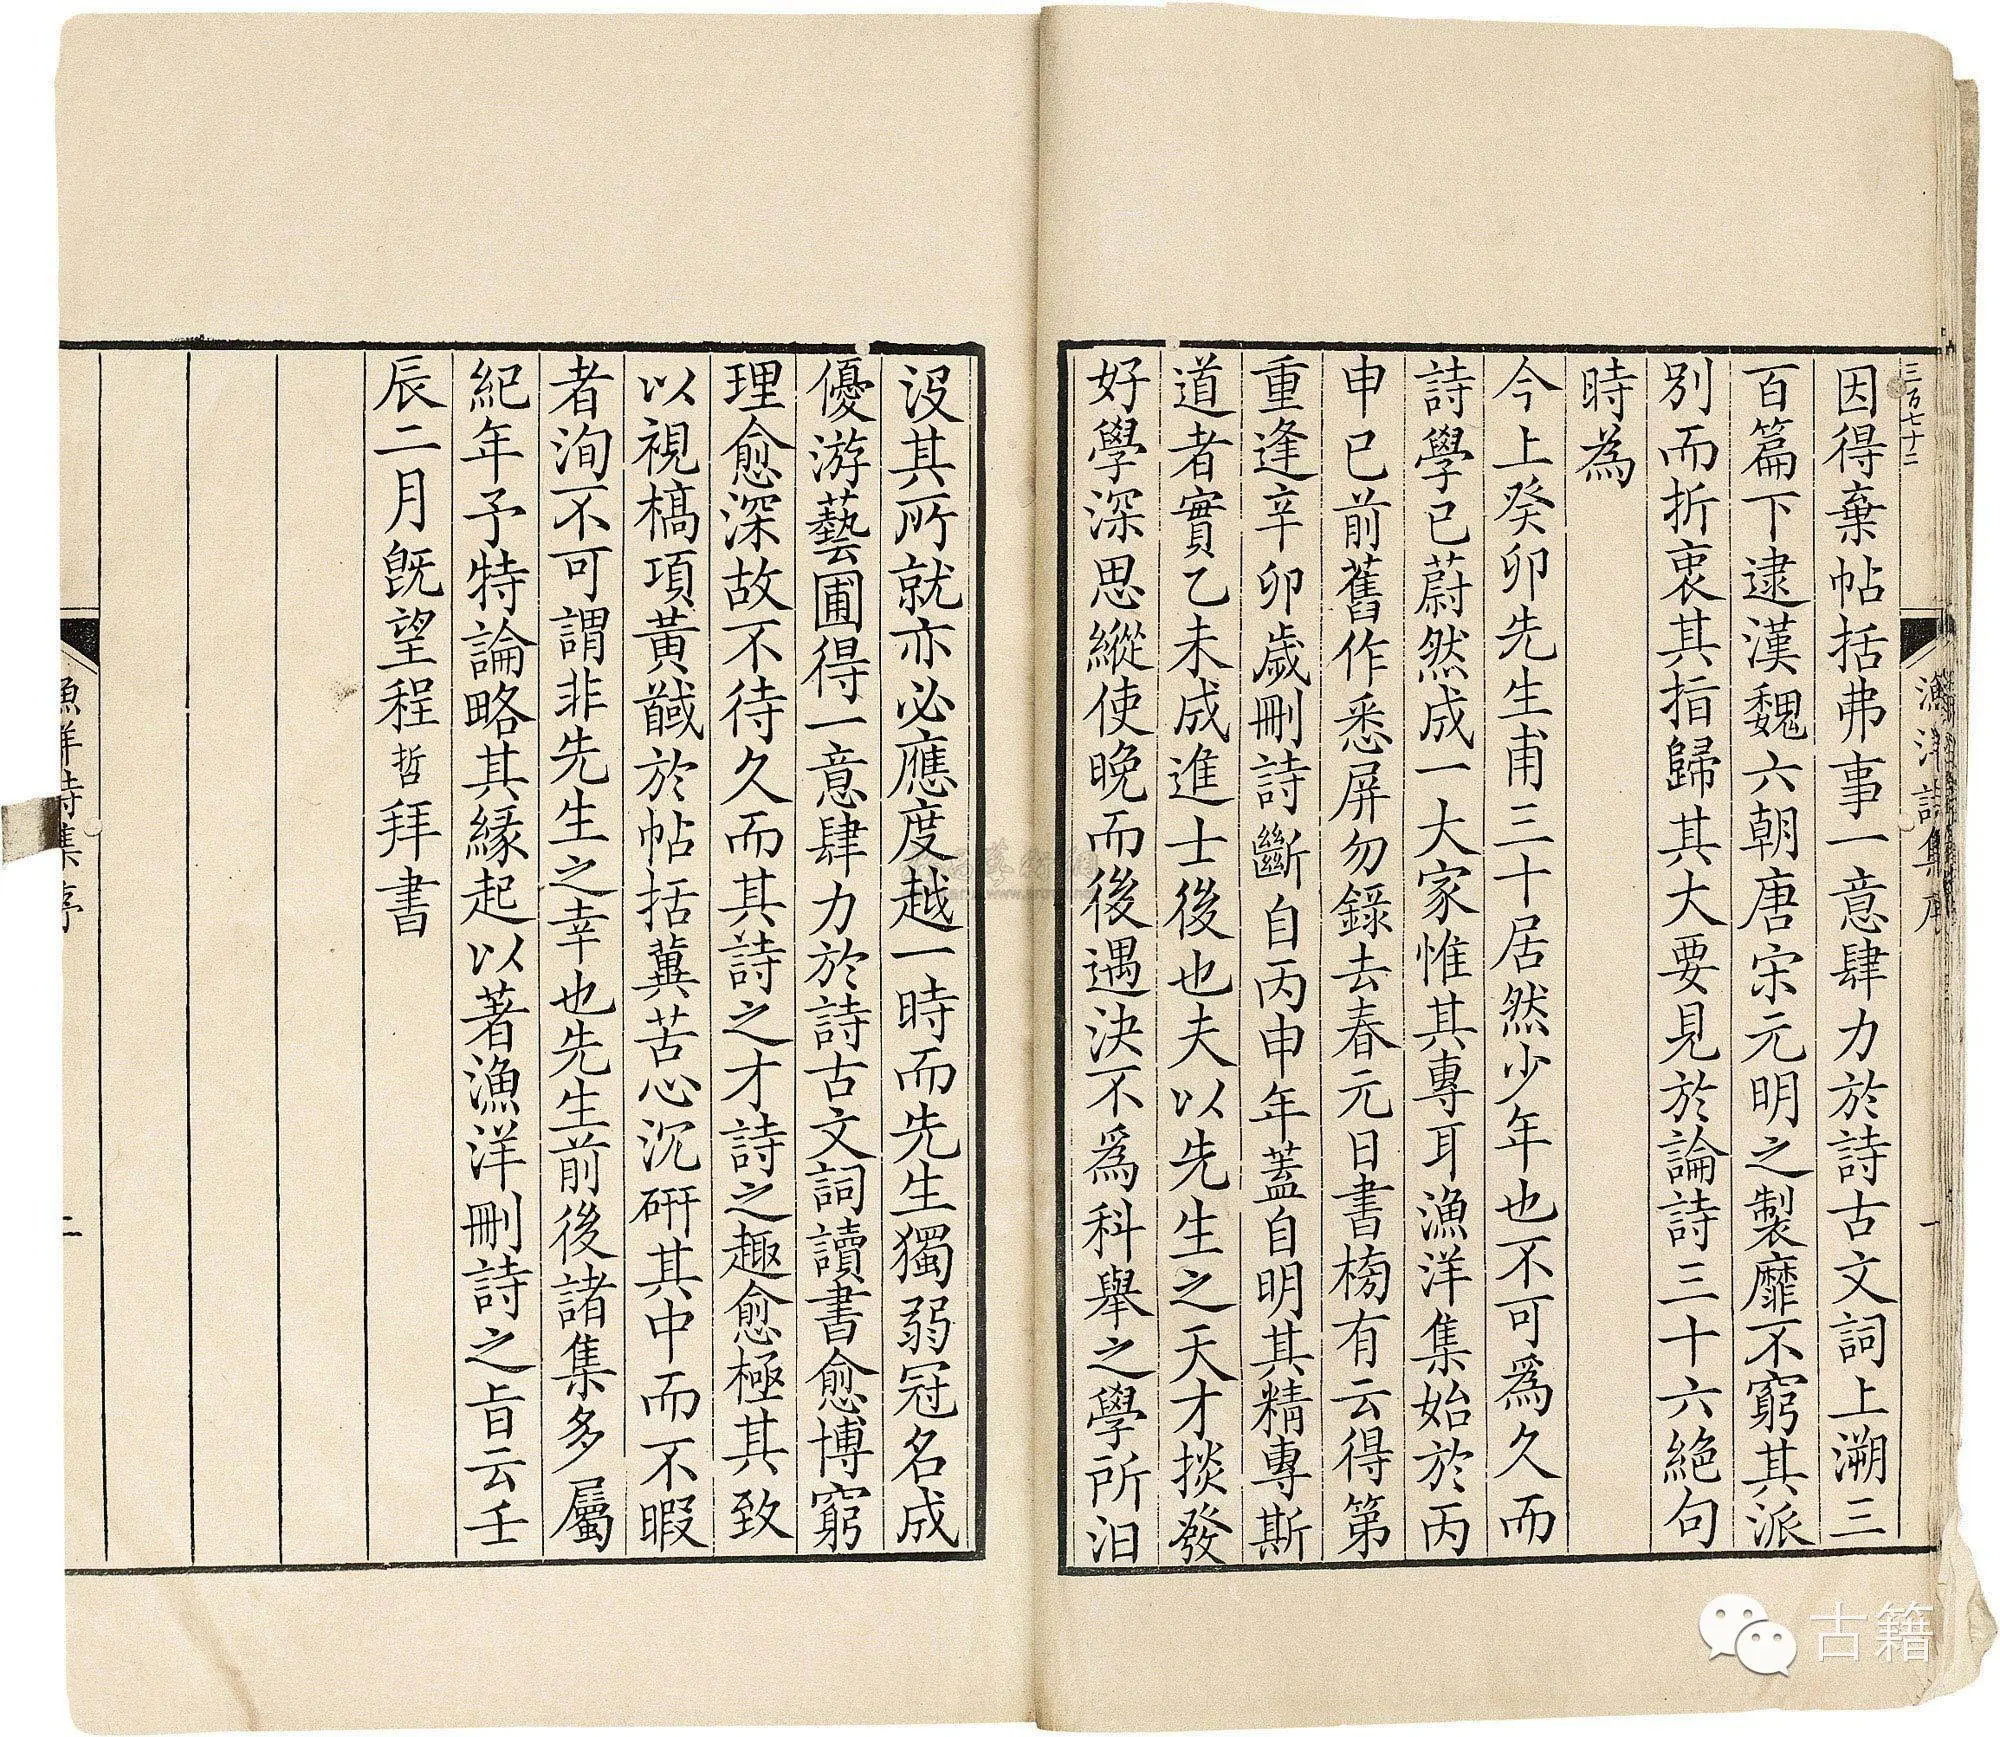 三百七十二
因得棄帖括弗事一意肆力於詩古文詞上溯三
百篇下逮漢魏六朝唐宋元明之製靡不窮其派
別而折衷其指歸其大要見於論詩三十六絶句
時為
今上癸卯先生甫三十居然少年也不可爲久而
詩學已蔚然成一大家惟其專耳漁洋集始於丙
申已前舊作悉屏勿錄去春元日書榜有云得第
重逢辛卯歲刪詩斷自丙申年蓋自明其精專斯
道者實乙未成進士後也夫以先生之天才掞發
好學深思縱使晚而後遇決不爲科舉之學所汨
漁洋詩集序
一
沒其所就亦必應度越一時而先生獨弱冠名成
優游藝圃得一意肆力於詩古文詞讀書愈博窮
理愈深故不待久而其詩之才詩之趣愈極其致
以視槁項黃馘於帖括冀苦心沉研其中而不暇
者洵不可謂非先生之幸也先生前後諸集多屬
紀年予特論略其緣起以著漁洋刪詩之旨云壬
辰二月旣望程哲拜書
漁洋詩集序
二
古籍